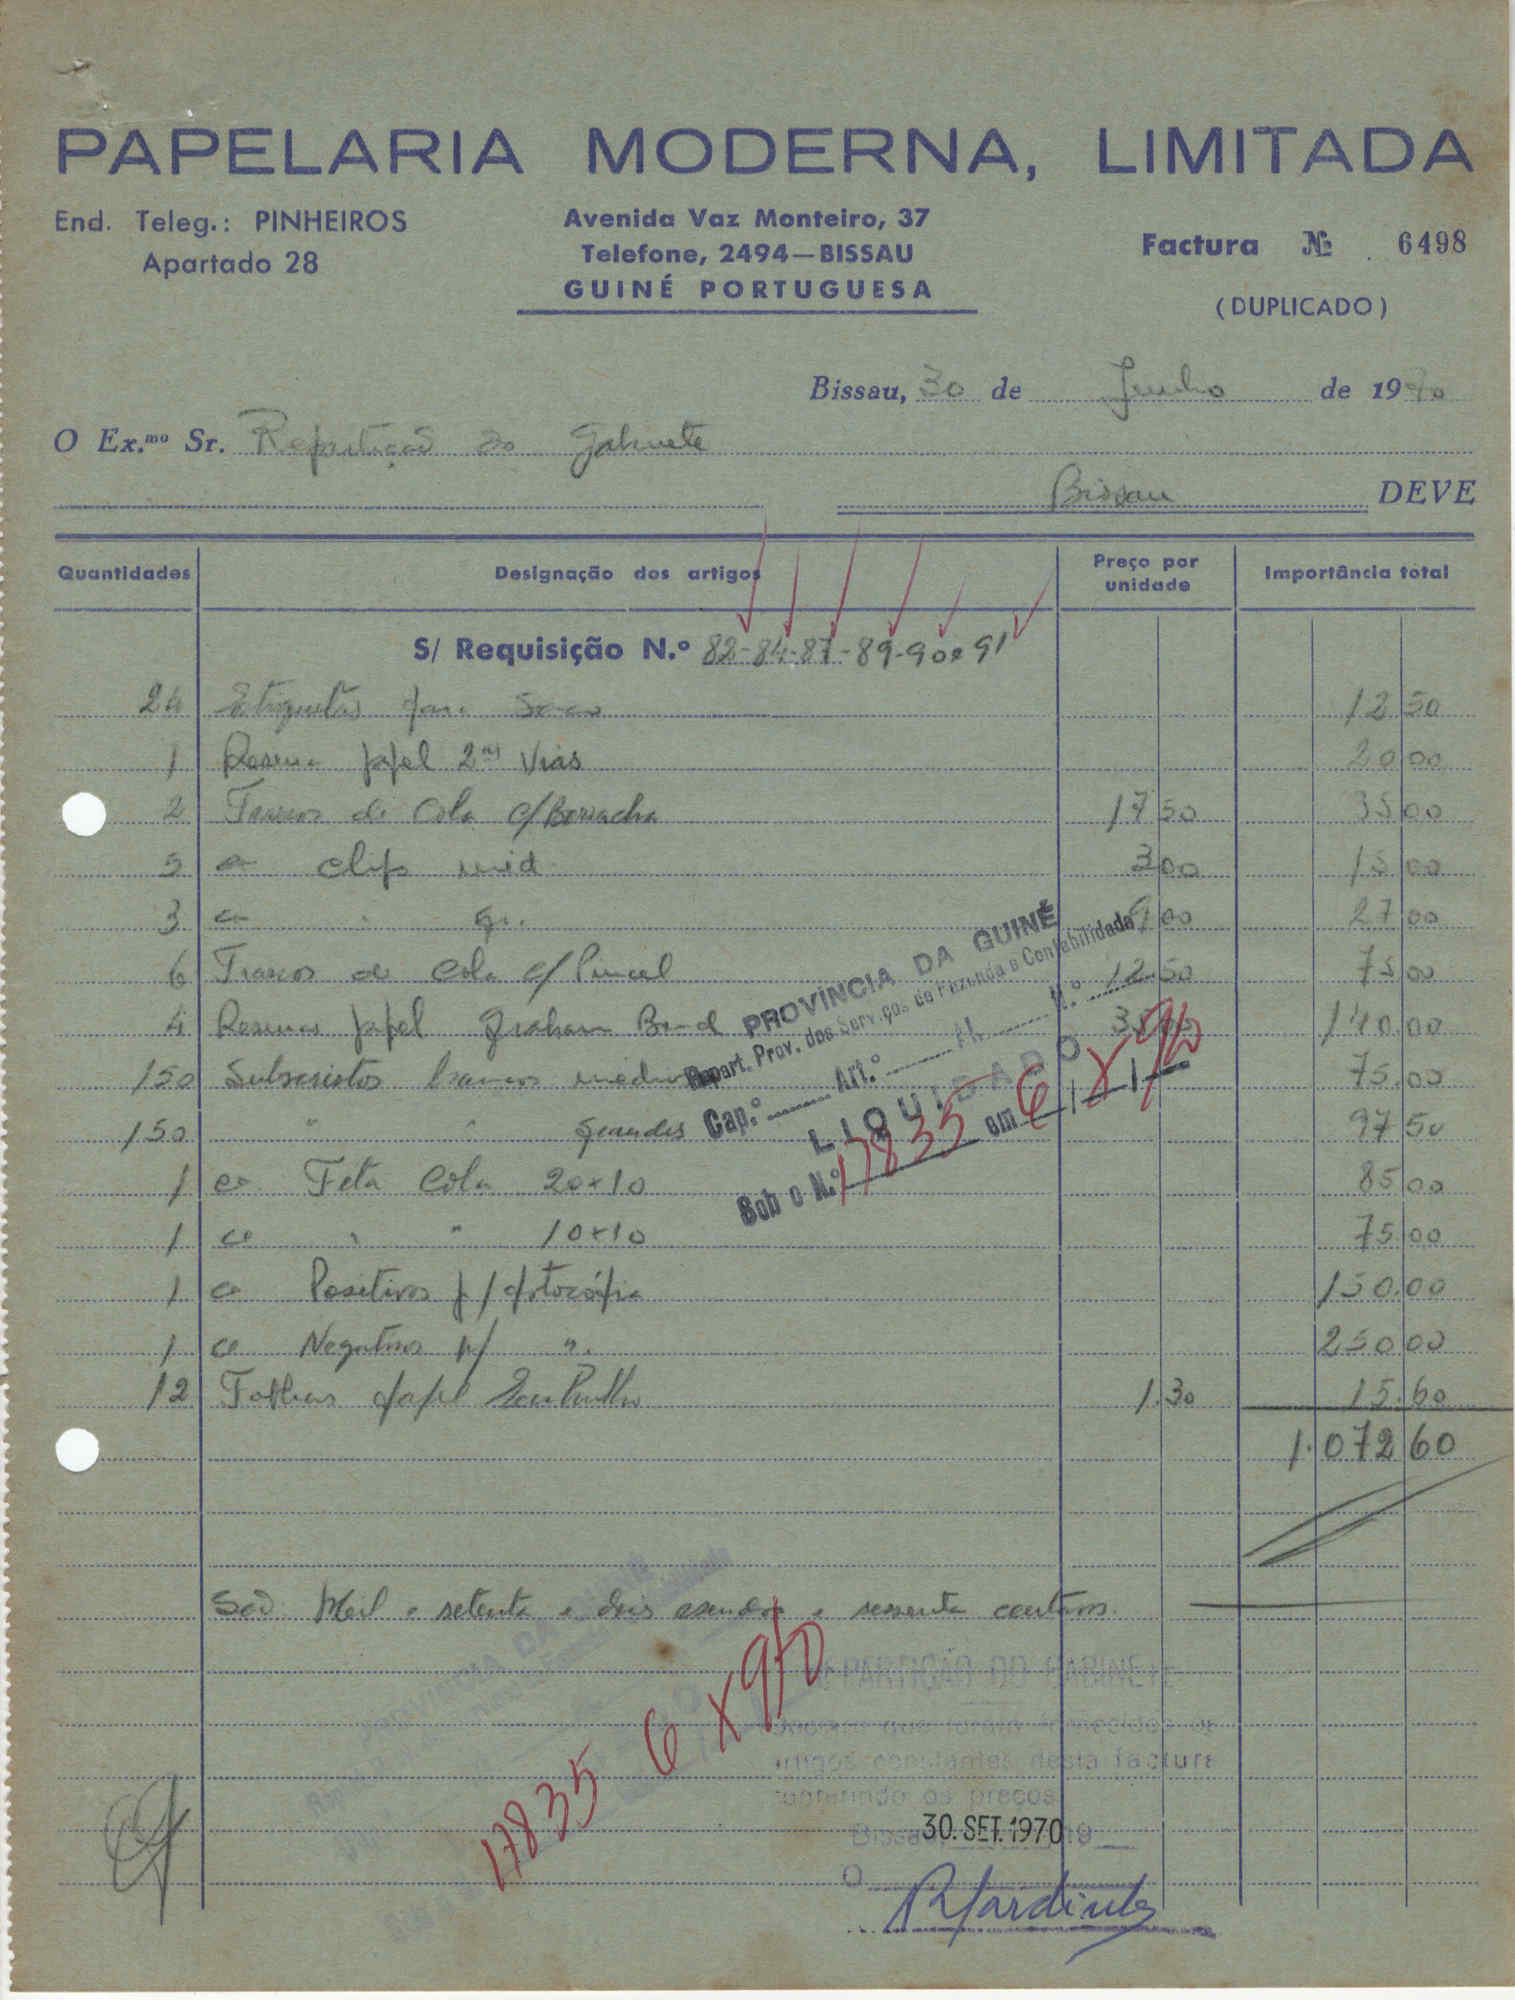 PAPELARIA MODERNA, LIMITADA
End. Teleg.: PINHEIROS
Apartado 28
Avenida Vaz Monteiro, 37
Telefone, 2494—BISSAU
GUINÉ PORTUGUESA
Factura Nº 6498
(DUPLICADO)
Bissau, 30 de Junho de 1970
O Ex.mo Sr. Repartição do Gabinete
Bissau DEVE
Quantidades Designação dos artigos Preço por unidade Importância total
S/ Requisição N.º 82-84-87-89-90 e 91
Etiquetas para 12.50
1 Resma papel 2as Vias 20.00
2 Frascos de Cola c/ Borracha 17.50 35.00
5 cx clips méd. 3.00 15.00
3 cx " gr. 9.00 27.00
6 Frascos de Cola c/ Pincel 12.50 75.00
4 Resmas papel Graham Bond 35.00 140.00
150 Subscritos brancos médios 75.00
150 " " grandes 97.50
1 cx Fita Cola 20x10 85.00
1 cx " " 10x10 75.00
1 cx Positivos p/ fotocópia 150.00
1 cx Negativos p/ ". 250.00
12 Folhas papel 1.30 15.60
1.072.60
PROVÍNCIA DA GUINÉ
Repart. Prov. dos Serviços de Fazenda e Contabilidade
Cap.º Art.º N.º
LIQUIDADO
Sob o N.º 17835 em 6/X/970
São Mil e setenta e dois escudos e sessenta centavos.
17835 6 X 970
REPARTIÇÃO DO GABINETE
que foram fornecidos os
artigos constantes desta factura
conferindo os preços
Bissau 30. SET. 1970 19
O